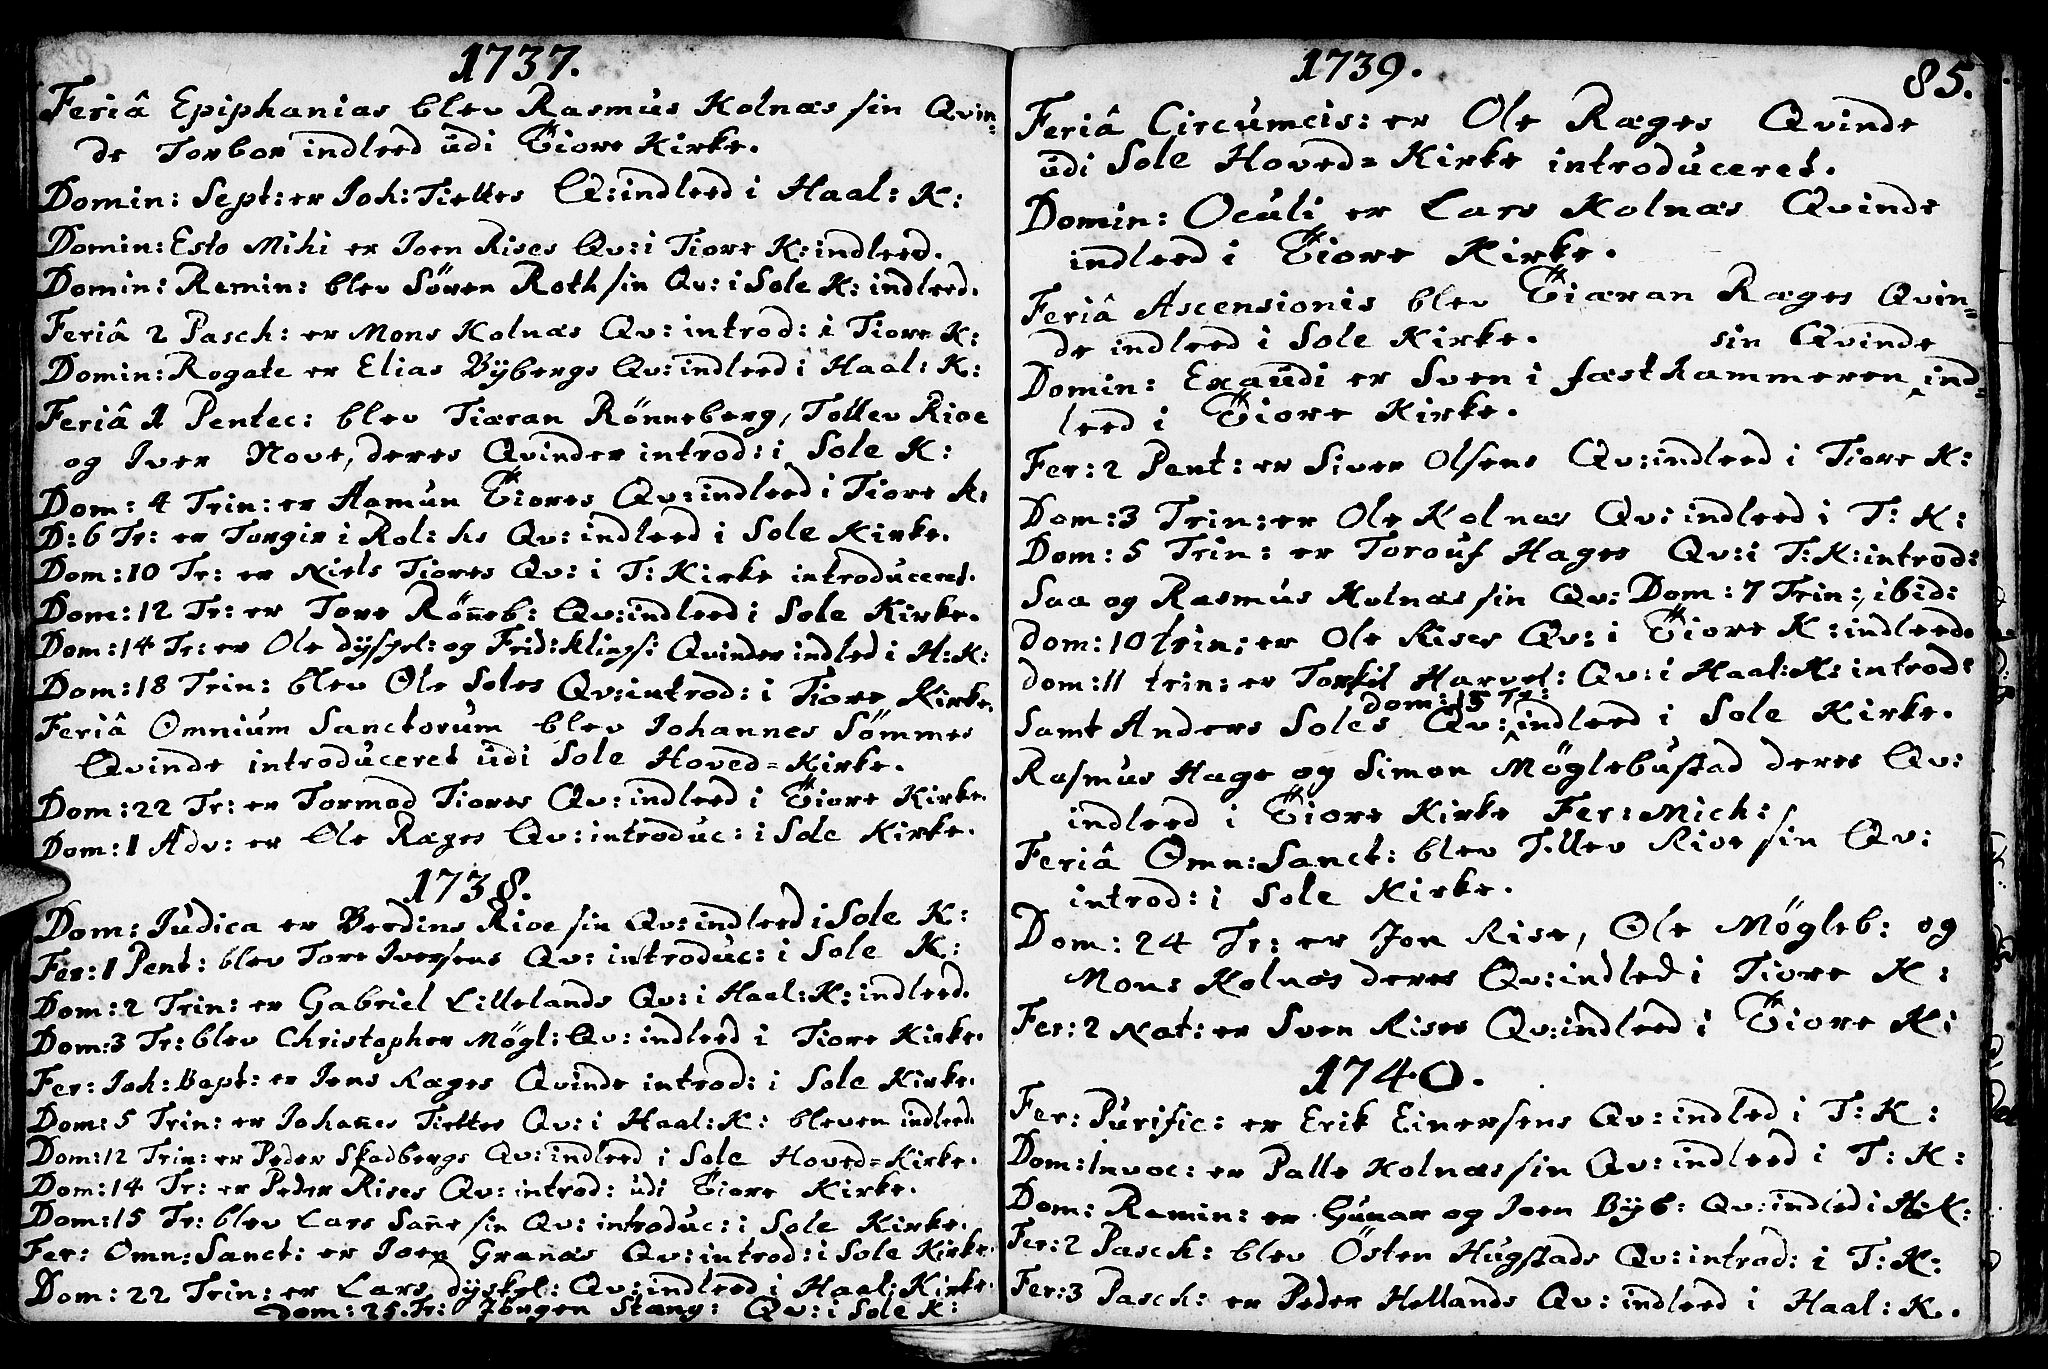 1737.
Feriâ Epiphanias blev Rasmus Kolnæs sin Qvin-
de Torbor indleed udi Tiore Kirke.
Domin: Sept: er Joh: Tieltes Q: indleed i Haal: K:
Domin: Esto Mihi er Joen Rises Qv: i Tiore K: indleed.
Domin: Remin: blev Sören Roth sin Qv: i Sole K: indleed.
Feriâ 2 Pasch: er Mons Kolnæs Qv: introd: i Tiore K:
Domin: Rogate er Elias Bÿbergs Qv: indleed i Haal: K:
Feriâ 1 Pentec: blev Tiæran Rönneberg, Tollev Rioe
og Iver Nove, deres Qvinder introd: i Sole K:
Dom: 4 Trin: er Aamun Tiores Qv: indleed i Tiore K:
D: 6 Tr: er Torgir i Rol: hs Qv: indleed i Sole Kirke.
Dom: 10 Tr: er Niels Tiores Qv: i T: Kirke introduceret.
Dom: 12 Tr: er Tore Rön̄eb: Qv: indleed i Sole Kirke.
Dom: 14 Tr: er Ole dÿsjel: og Frid: Klings: Qvinder indled i H: K:
Dom: 18 Trin: blev Ole Soles Qv: introd: i Tiore Kirke.
Feriâ Omnium Sanctorum blev Johannes Sömmes
Qvinde introduceret udi Sole Hoved=Kirke.
Dom: 22 Tr: er Tormod Tiores Qv: indleed i Tiore Kirke.
Dom: 1 Adv: er Ole Ræges Qv: introduc: i Sole Kirke.
1738.
Dom: Judica er Berdins Rioe sin Qv: indleed i Sole K:
Fer: 1 Pent: blev Tore Iversens Qv: introduc: i Sole K:
Dom: 2 Trin: er Gabriel Lillelands Qv: i Haal: K: indleed.
Dom: 3 Tr: blev Christopher Mögl: Qv: indleed i Tiore Kirke.
Fer: Joh: Bapt: er Jens Ræges Qvinde introd: i Sole Kirke.
Dom: 5 Trin: er Johan̄es Tieltes Qv: i Haal: K: bleven indleed.
Dom: 12 Trin: er Peder Skadbergs Qv: indleed i Sole Hoved=Kirke.
Dom: 14 Tr: er Peder Rises Qv: introd: udi Tiore Kirke.
Dom: 15 Tr: blev Lars San̄e sin Qv: introduc: i Sole Kirke.
Fer: Omn: Sanct: er Joen Granæs Qv: introd: i Sole Kirke.
Dom: 22 Trin: er Lars dÿskel: Qv: indleed i Haal: Kirke.
Dom: 25. Tr: Jörgen Stang: Qv: i Sole K:
1739.
85.
Feriâ Circumcis: er Ole Ræges Qvinde
udi Sole Hoved=Kirke introduceret.
Domin: Oculi er Lars Kolnæs Qvinde
indleed i Tiore Kirke.
Feriâ Ascensionis blev Tiæran Ræges Qvin-
de indleed i Sole Kirke.
sin Qvinde
Domin: Exaudi er Sven i fæsthammeren ind-
leed i Tiore Kirke.
Fer: 2 Pent: er Siver Olsens Qv: indleed i Tiore K:
Dom: 3 Trin: er Ole Kolnæs Qv: indleed i T: K:
Dom: 5 Trin: er Torouf Hages Qv: i T: K: introd:
Saa og Rasmus Kolnæs sin Qv: Dom: 7 Trin:, ibid:
dom: 10 trin: er Ole Rises Qv: i Tiore K: indleed.
dom: 11 trin: er Torkil Harvel: Qv: i Haal: K: introd:
dom: 15 Tr:
Samt Anders Soles Qv: indleed i Sole Kirke.
Rasmus Hage og Simon Möglebustad deres Qv:
indleed i Tiore Kirke Fer: Mich:
Feriâ Omn: Sanct: blev Tollev Rioe sin Qv:
introd: i Sole Kirke.
Dom: 24 Tr: er Jon Rise, Ole Mögleb: og
Mons Kolnæs deres Qv: indled i Tiore K:
Fer: 2 Nat: er Sven Rises Qv: indleed i Tiore K:
1740.
Fer: Purific: er Erik Einersens Qv: indled i T: K:
Dom: Invoc: er Palle Kolnæs sin Qv: indleed i T: K:
Dom: Remin: er Gunar og Joen Bÿb: Qv: indled i H: K:
Fer: 2 Pasch: blev Östen Hugstads Qv: introd: i T: K:
Fer: 3 Pasch: er Peder Hellands Qv: indleed i Haal: K.